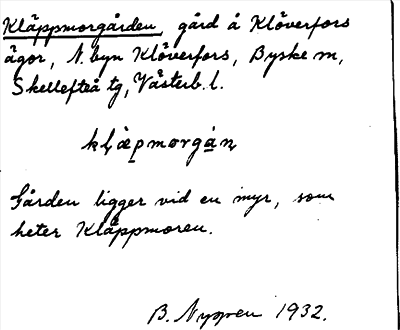 Kläppmorgården, gård å Klöverfors
ägor, N. byn Klöverfors, Byske sn,
Skellefteå tg, Västerb. l.
Gården ligger vid en myr, som
heter Kläppmoren.
B. Nygren 1932.